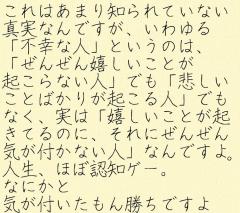 これはあまり知られていない
真実なんですが、いわゆる
「不幸な人」というのは、
「ぜんぜん嬉しいことが
起こらない人」でも「悲しい
ことばかりが起こる人」でも
なく、実は「嬉しいことが起
きてるのに、それにぜんぜん
気が付かない人」なんですよ。
人生、ほぼ認知ゲー。
なにかと
気が付いたもん勝ちですよ